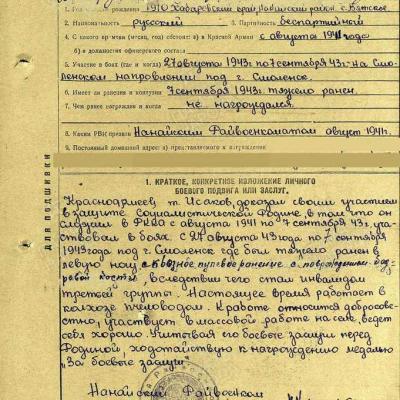 1. Год рождения 1910 Хабаровский край, район с. Вятское
2. Национальность русский 3. Партийность беспартийный
4. С какого времени (месяц, год) состоит: а) в Красной Армии с августа 1941 года
б) в должности офицерского состава
5. Участие в боях (где и когда) 27 августа 1943г. по 7 сентября 43г. на Смо-
ленском направлении под г. Смоленск.
6. Имеет ли ранения и контузии 7 сентября 1943г. тяжело ранен.
7. Чем ранее награжден и когда не награждался.
8. Каким РВК призван Нанайским Райвоенкоматом август 1941г.
9. Постоянный домашний адрес: а) представляемого к награждению
ДЛЯ ПОДШИВКИ
1. КРАТКОЕ, КОНКРЕТНОЕ ИЗЛОЖЕНИЕ ЛИЧНОГО
БОЕВОГО ПОДВИГА ИЛИ ЗАСЛУГ.
Красноармеец т. Исаков, доказал своим участием
в защите Социалистической Родине, в том что он
служил в РККА с августа 1941 по 7 сентября 43г. уча-
ствовал в боях с 27 августа 43 года по 7 сентября
1943 года под г. Смоленск где был тяжело ранен в
левую ногу сквозное пулевое ранение с повреждением бед-
ровой кости, вследствии чего стал инвалидом
третьей группы. Настоящее время работает в
колхозе пчеловодом. К работе относится добросове-
стно, участвует в массовой работе на селе, ведет
себя хорошо. Учитывая его боевые заслуги перед
Родиной, ходатайствую к награждению медалью
"За боевые заслуги"
Нанайский Райвоенком